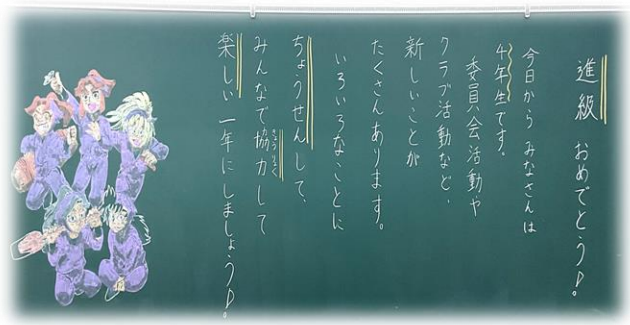 進級 おめでとう♪。
今日から みなさんは
4年生です。
委員会活動や
クラブ活動など、
新しいことが
たくさんあります。
いろいろなことに
ちょうせんして、
みんなで協力して
きょうりょく
楽しい 一年にしましょう♪。